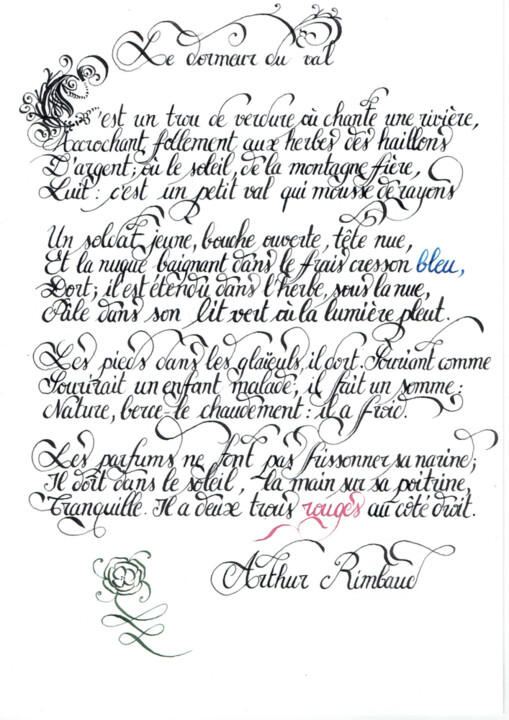 Le dormeur du val
C'est un trou de verdure où chante une rivière,
Accrochant follement aux herbes des haillons
D'argent; où le soleil, de la montagne fière,
Luit: c'est un petit val qui mousse de rayons
Un soldat jeune, bouche ouverte, tête nue,
Et la nuque baignant dans le frais cresson bleu,
Dort; il est étendu dans l'herbe, sous la nue,
Pâle dans son lit vert où la lumière pleut.
Les pieds dans les glaïeuls, il dort. Souriant comme
Sourirait un enfant malade, il fait un somme:
Nature, berce-le chaudement: il a froid.
Les parfums ne font pas frissonner sa narine;
Il dort dans le soleil, la main sur sa poitrine,
Tranquille. Il a deux trous rouges au côté droit.
Arthur Rimbaud